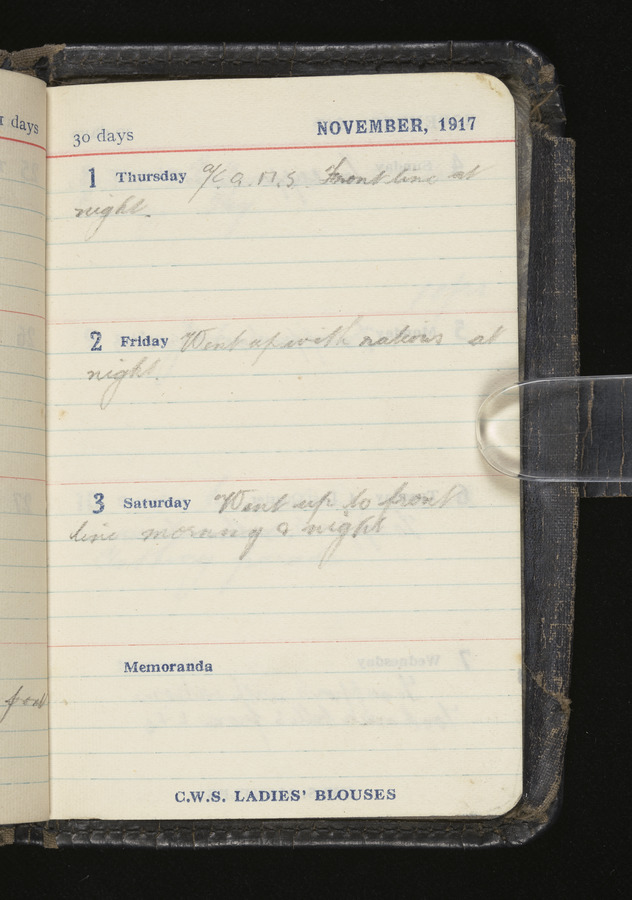 1 days
30 days NOVEMBER, 1917
1 Thursday Front line at
night.
2 Friday Went up with rations at
night.
3 Saturday Went up to front
line morning & night
Memoranda
C.W.S. LADIES' BLOUSES